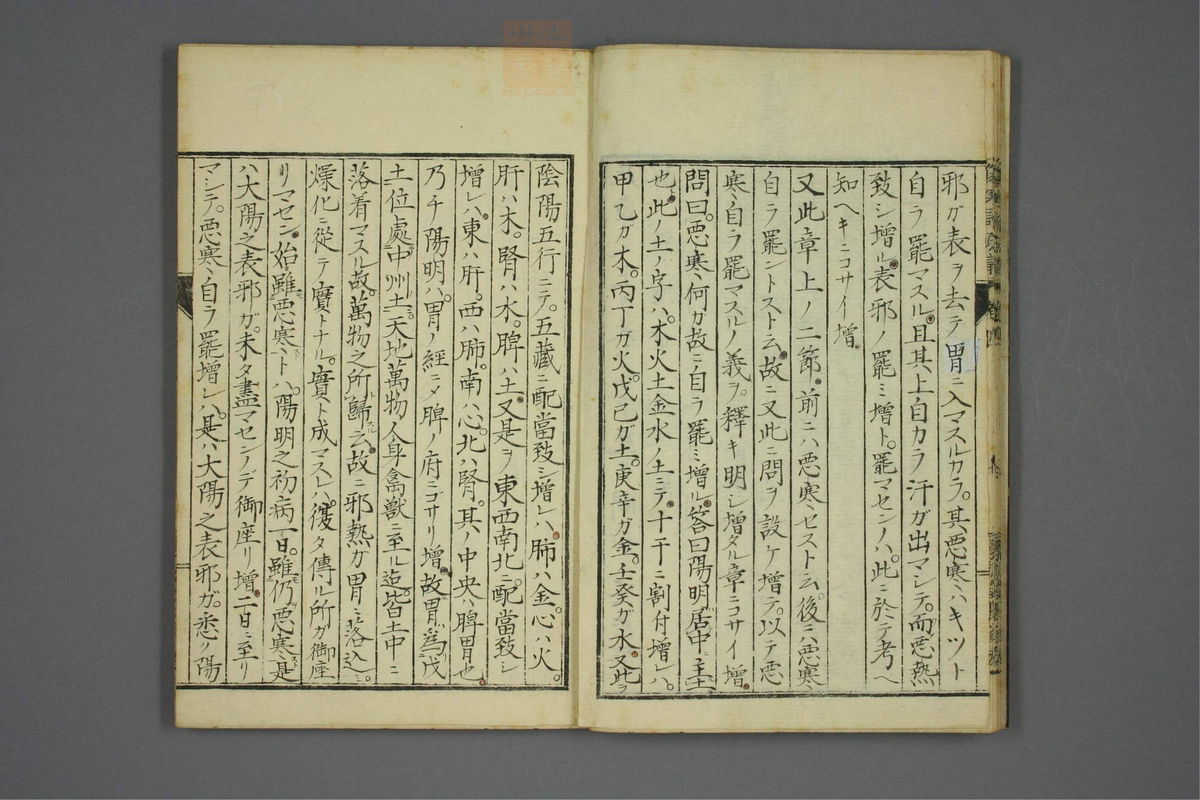 邪ガ表ヲ去テ胃ニ入マスルカラ。其悪寒ハキツト
自ラ罷マスル。且其上自カラ汗ガ出マシテ。而悪熱
致シ増ル。表邪ノ罷ミ増ト。罷マセンノハ。此ニ於テ考ヘ
知ヘキニコサイ増。
又此章上ノ二節。前ニハ悪寒セスト云。後ニハ悪寒
自ラ罷ントスト云。故ニ又此ニ問ヲ設ケ増テ。以テ悪
寒自ラ罷マスルノ義ヲ。釋キ明シ増タル章ニコサイ増。
問曰。悪寒何ガ故ニ自ラ罷ミ増ル。答曰陽明居中主土
也。此ノ土ノ字ハ。木火土金水ノ土ニテ。十干ニ割付増レハ。
甲乙ガ木。丙丁ガ火。戊己ガ土。庚辛ガ金。壬癸ガ水。又此ヲ
陰陽五行ニテ。五藏ニ配當致シ増レハ。肺ハ金。心ハ火。
肝ハ木。腎ハ水。脾ハ土。又是ヲ東西南北ニ。配當致シ
増レハ。東ハ肝。西ハ肺。南ハ心。北ハ腎。其ノ中央ハ脾胃也。
乃チ陽明ハ。胃ノ經ニメ脾ノ府ニゴサリ増。故胃爲戊
土位處中州土。天地萬物人身禽獣ニ至ル迄。皆土中ニ
落着マスル故。萬物之所歸云。故ニ邪熱ガ胃ニ落入。
燥化ニ從テ實トナル。實ト成マスレハ。復タ傳ル所ガ御座
リマセン。始雖悪寒トハ。陽明之初病一日。雖仍悪寒是
ハ大陽之表邪ガ。未タ盡マセンノデ御座リ増。二日ニ至リ
マシテ。悪寒自ラ罷増レハ。是ハ大陽之表邪ガ。悉ク陽